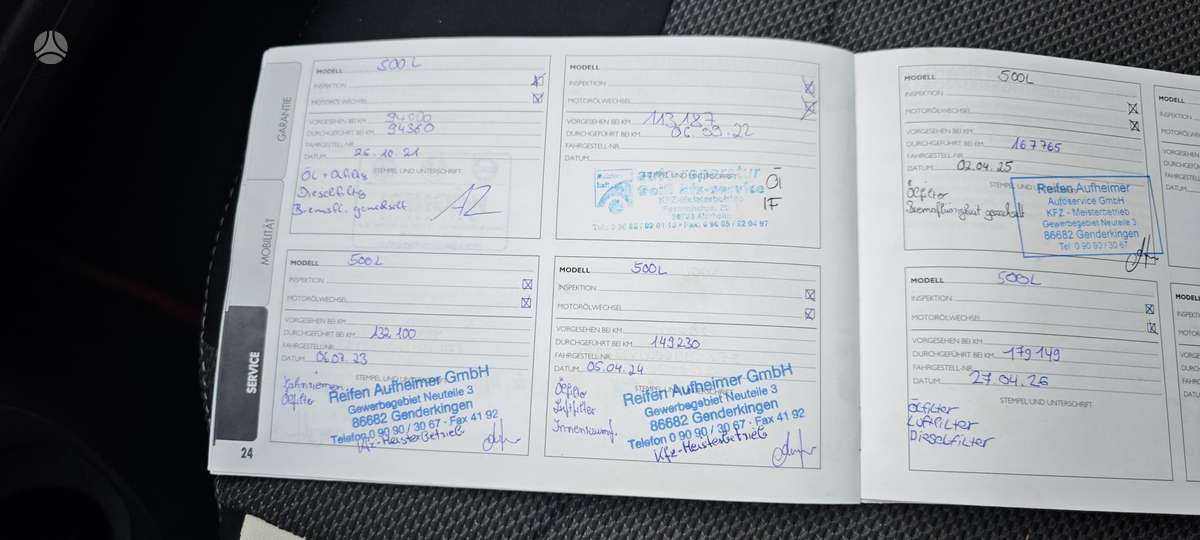 GARANTIE
MOBILITÄT
SERVICE
24
MODELL 500L
INSPEKTION
MOTORÖLWECHSEL
VORGESEHEN BEI KM 94000
DURCHGEFÜHRT BEI KM 94360
FAHRGESTELL-NR.
DATUM 26.10.21
STEMPEL UND UNTERSCHRIFT
Dieselfiltg
Bremsfl. gewechselt
AZ
MODELL
INSPEKTION
MOTORÖLWECHSEL
VORGESEHEN BEI KM 113187
DURCHGEFÜHRT BEI KM 06.09.22
FAHRGESTELL-NR.
DATUM
STEMPEL UND UNTERSCHRIFT
KFZ-Meisterbetrieb
Öl
IF
MODELL 500L
INSPEKTION
MOTORÖLWECHSEL
VORGESEHEN BEI KM
DURCHGEFÜHRT BEI KM 132100
FAHRGESTELL-NR.
DATUM 06.07.23
STEMPEL UND UNTERSCHRIFT
Zahnriemen
Ölfilter
Reifen Aufheimer GmbH
Gewerbegebiet Neuteile 3
86682 Genderkingen
Telefon 0 90 90 / 30 67 · Fax 41 92
Kfz-Meisterbetrieb
MODELL 500L
INSPEKTION
MOTORÖLWECHSEL
VORGESEHEN BEI KM
DURCHGEFÜHRT BEI KM 149230
FAHRGESTELL-NR.
DATUM 05.04.24
STEMPEL UND UNTERSCHRIFT
Ölfilter
Luftfilter
Innenraumf.
Reifen Aufheimer GmbH
Gewerbegebiet Neuteile 3
86682 Genderkingen
Telefon 0 90 90 / 30 67 · Fax 41 92
Kfz-Meisterbetrieb
MODELL 500L
INSPEKTION
MOTORÖLWECHSEL
VORGESEHEN BEI KM
DURCHGEFÜHRT BEI KM 167765
FAHRGESTELL-NR.
DATUM 02.04.25
STEMPEL UND
Ölfilter
Bremsflüssigkeit gewechselt
Reifen Aufheimer
Autoservice GmbH
KFZ - Meisterbetrieb
Gewerbegebiet Neuteile 3
86682 Genderkingen
Tel. 0 90 90 / 30 67
MODELL 500L
INSPEKTION
MOTORÖLWECHSEL
VORGESEHEN BEI KM
DURCHGEFÜHRT BEI KM 179149
FAHRGESTELL-NR.
DATUM 27.04.26
STEMPEL UND UNTERSCHRIFT
Ölfilter
Luftfilter
Dieselfilter
MODELL
INSPEKTION
VORGESEHEN
FAHRGESTELL
DATUM